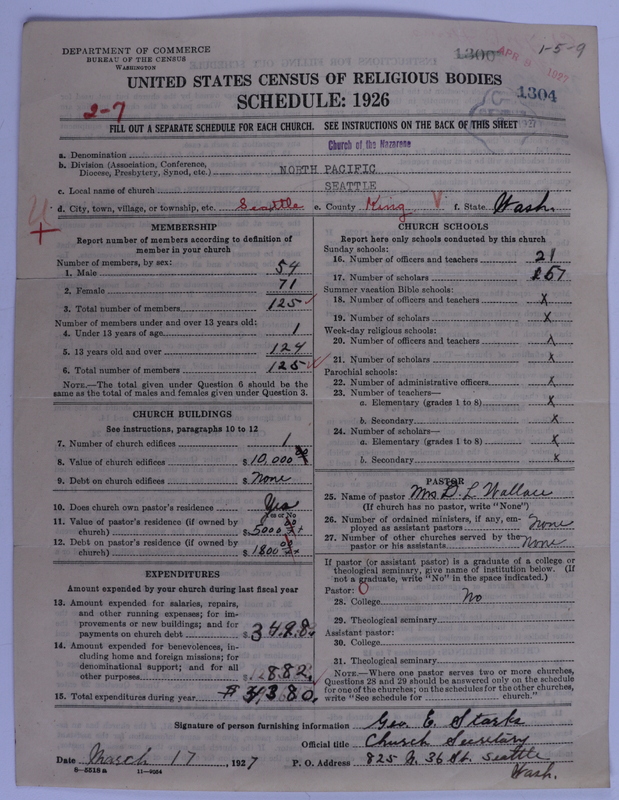 DEPARTMENT OF COMMERCE
BUREAU OF THE CENSUS
WASHINGTON
1300
APR 8 1927
1-5-9
UNITED STATES CENSUS OF RELIGIOUS BODIES
SCHEDULE: 1926
1304
2-7
FILL OUT A SEPARATE SCHEDULE FOR EACH CHURCH. SEE INSTRUCTIONS ON THE BACK OF THIS SHEET
a. Denomination Church of the Nazarene
b. Division (Association, Conference, Diocese, Presbytery, Synod, etc.) NORTH PACIFIC
c. Local name of church SEATTLE
d. City, town, village, or township, etc. Seattle e. County King f. State Wash.
MEMBERSHIP
Report number of members according to definition of
member in your church
Number of members, by sex:
1. Male 54
2. Female 71
3. Total number of members 125
Number of members under and over 13 years old:
4. Under 13 years of age 1
5. 13 years old and over 124
6. Total number of members 125
NOTE.—The total given under Question 6 should be
same as the total of males and females given under Question 3.
CHURCH BUILDINGS
See instructions, paragraphs 10 to 12
7. Number of church edifices 1
8. Value of church edifices $ 10,000
9. Debt on church edifices $ None
10. Does church own pastor's residence Yes
Yes or No
11. Value of pastor's residence (if owned by
church) $ 5000
12. Debt on pastor's residence (if owned by
church) $ 1800
EXPENDITURES
Amount expended by your church during last fiscal year
13. Amount expended for salaries, repairs,
and other running expenses; for im-
provements or new buildings; and for
payments on church debt $ 3498
14. Amount expended for benevolences, in-
cluding home and foreign missions; for
denominational support; and for all
other purposes 882.
15. Total expenditures during year $ 4380.
CHURCH SCHOOLS
Report here only schools conducted by this church
Sunday schools:
16. Number of officers and teachers 21
17. Number of scholars
Summer vacation Bible schools:
18. Number of officers and teachers X
19. Number of scholars X
Week-day religious schools:
20. Number of officers and teachers X
21. Number of scholars X
Parochial schools:
22. Number of administrative officers X
23. Number of teachers—
a. Elementary (grades 1 to 8) X
b. Secondary X
24. Number of scholars—
a. Elementary (grades 1 to 8) X
b. Secondary X
PASTOR
25. Name of pastor Mrs D. L. Wallace
(If church has no pastor, write "None")
26. Number of ordained ministers, if any, em-
ployed as assistant pastors None
27. Number of other churches served by the
pastor or his assistants None
If pastor (or assistant pastor) is a graduate of a college or
theological seminary, give name of institution below. (If
not a graduate, write "No" in the space indicated.)
Pastor: O
28. College No
29. Theological seminary
Assistant pastor:
30. College
31. Theological seminary
NOTE.—Where one pastor serves two or more churches,
Questions 28 and 29 should be answered only on the schedule
for one of the churches; on the schedules for the other churches,
write "See schedule for church."
Signature of person furnishing information Geo. E. Starks
Official title Church Secretary
Date March 17, 1927 P. O. Address 825 N. 36 St. Seattle
Wash.
8-5518a 11-9034